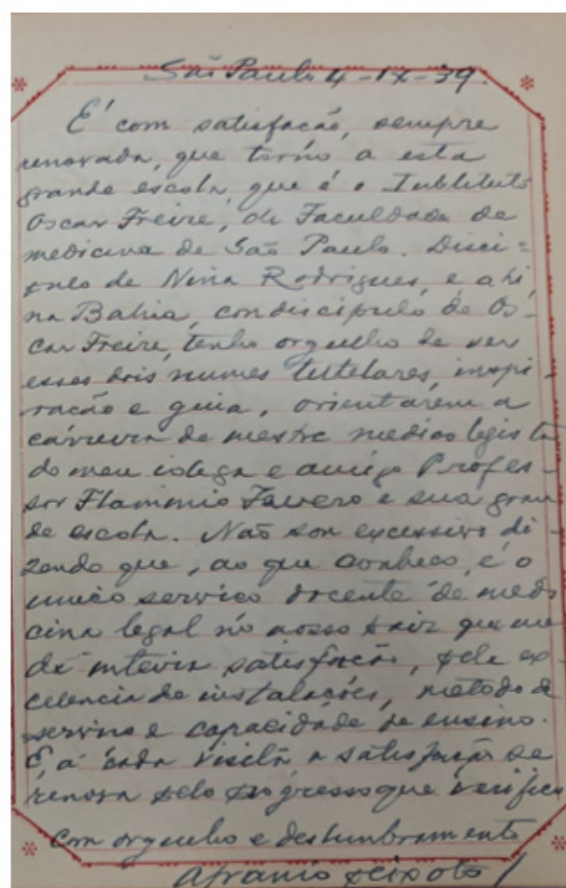 São Paulo 4-IX-39.
É com satisfacão, sempre
renovada, que torno a esta
grande escola, que é o Instituto
Oscar Freire, da Faculdade de
medicina de São Paulo. Disci=
pulo de Nina Rodrigues, e ahi,
na Bahia, condiscipulo de Os-
car Freire, tenho orgulho de ver
esses dois numes tutelares, inspi-
racão e guia, orientarem a
carreira de mestre medico legista
do meu colega e amigo Profes-
sor Flaminio Favero e sua gran
de escola. Não sou excessivo di-
zendo que, ao que conheco, é o
unico servico docente de medi
cina legal no nosso paiz que me
dá inteira satisfacão, pela ex-
celencia de instalacões, metodo de
servico e capacidade de ensino.
E, a cada visita a satisfacão se
renova pelo progresso que verifico
com orgulho e deslumbramento
Afranio Peixoto